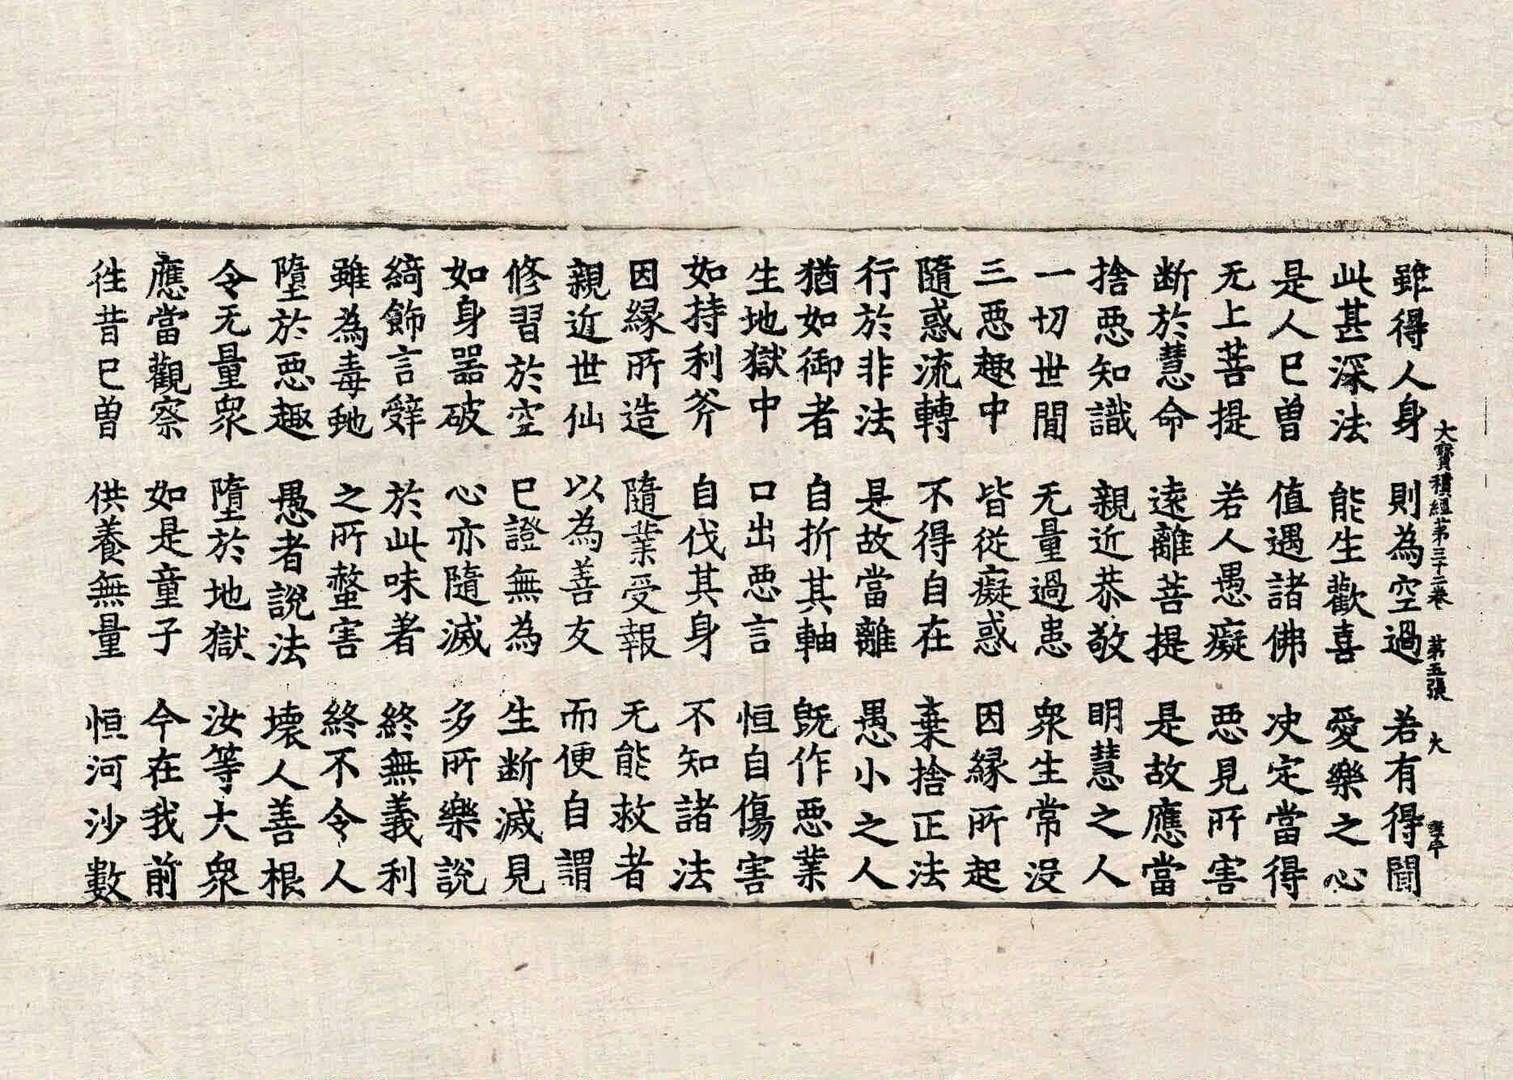 雖得人身 則為空過 若有得聞
大寶積經第三十二卷 第五張 火
此甚深法 能生歡喜 愛樂之心
是人已曾 值遇諸佛 决定當得
无上菩提 若人愚癡 惡見所害
断於慧命 遠離菩提 是故應當
捨惡知識 親近恭敬 明慧之人
一切世間 无量過患 衆生常没
三惡趣中 皆從癡惑 因緣所起
隨惑流轉 不得自在 棄捨正法
行於非法 是故當離 愚小之人
猶如御者 自折其軸 既作惡業
生地獄中 口出惡言 恒自傷害
如持利斧 自伐其身 不知諸法
因緣所造 隨業受報 无能救者
親近世仙 以為善友 而便自謂
修習於空 已證無為 生断滅見
如身器破 心亦隨滅 多所樂説
綺飾言辝 於此味著 終無義利
雖為毒虵 之所螫害 終不令人
墮於惡趣 愚者説法 壞人善根
令无量衆 墮於地獄 汝等大衆
應當觀察 如是童子 今在我前
徃昔已曾 供養無量 恒河沙數